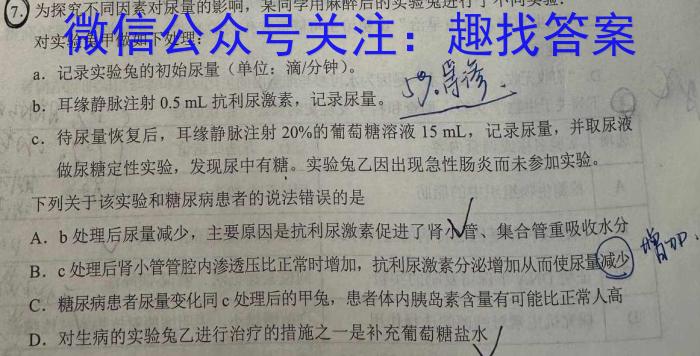 7. 为探究不同因素对尿量的影响，某同学用麻醉后的实验兔进行了不同实验。
微信公众号关注：趣找答案
对实验兔甲做如下处理：
a．记录实验兔的初始尿量（单位：滴/分钟）。
b．耳缘静脉注射 0.5 mL 抗利尿激素，记录尿量。
c．待尿量恢复后，耳缘静脉注射 20%的葡萄糖溶液 15 mL，记录尿量，并取尿液
做尿糖定性实验，发现尿中有糖。实验兔乙因出现急性肠炎而未参加实验。
下列关于该实验和糖尿病患者的说法错误的是
A．b 处理后尿量减少，主要原因是抗利尿激素促进了肾小管、集合管重吸收水分
B．c 处理后肾小管管腔内渗透压比正常时增加，抗利尿激素分泌增加从而使尿量减少
增加
C．糖尿病患者尿量变化同 c 处理后的甲兔，患者体内胰岛素含量有可能比正常人高
D．对生病的实验兔乙进行治疗的措施之一是补充葡萄糖盐水